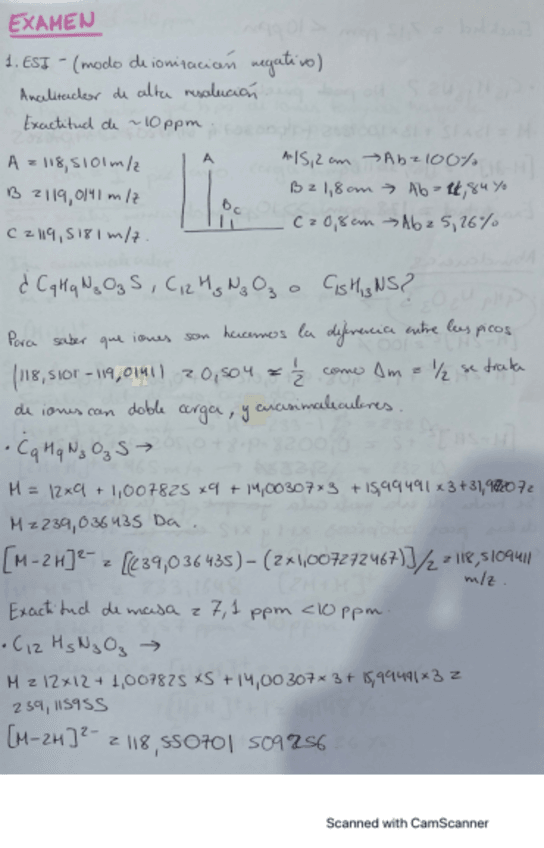 EXAMEN
1. ESI - (modo de ionización negativo)
Analizador de alta resolución
Exactitud de ~10 ppm
A = 118,5101 m/z
B = 119,0141 m/z
C = 119,5181 m/z.
A
B C
A=15,2 cm → Ab = 100%
B = 1,8 cm → Ab = 11,84%
C = 0,8 cm → Ab = 5,26%
¿ C9H9N3O3S, C12H5N3O3 o C15H13NS?
Para saber que iones son hacemos la diferencia entre los picos
|118,5101 - 119,0141| = 0,504 ≈ 1/2 como Δm = 1/2 se trata
de iones con doble carga, y
· C9H9N3O3S →
M = 12x9 + 1,007825 x9 + 14,00307x3 + 15,99491x3+31,972072
M = 239,036435 Da.
[M-2H]2- = [(239,036435) - (2x1,007272467)]/2 = 118,5109411
m/z.
Exactitud de masa = 7,1 ppm < 10 ppm.
· C12 H5 N3O3 →
M = 12x12 + 1,007825 x5 + 14,00307x3 + 15,99491x3 =
239,115955
[M-2H]2- = 118,550701 509256
Scanned with CamScanner